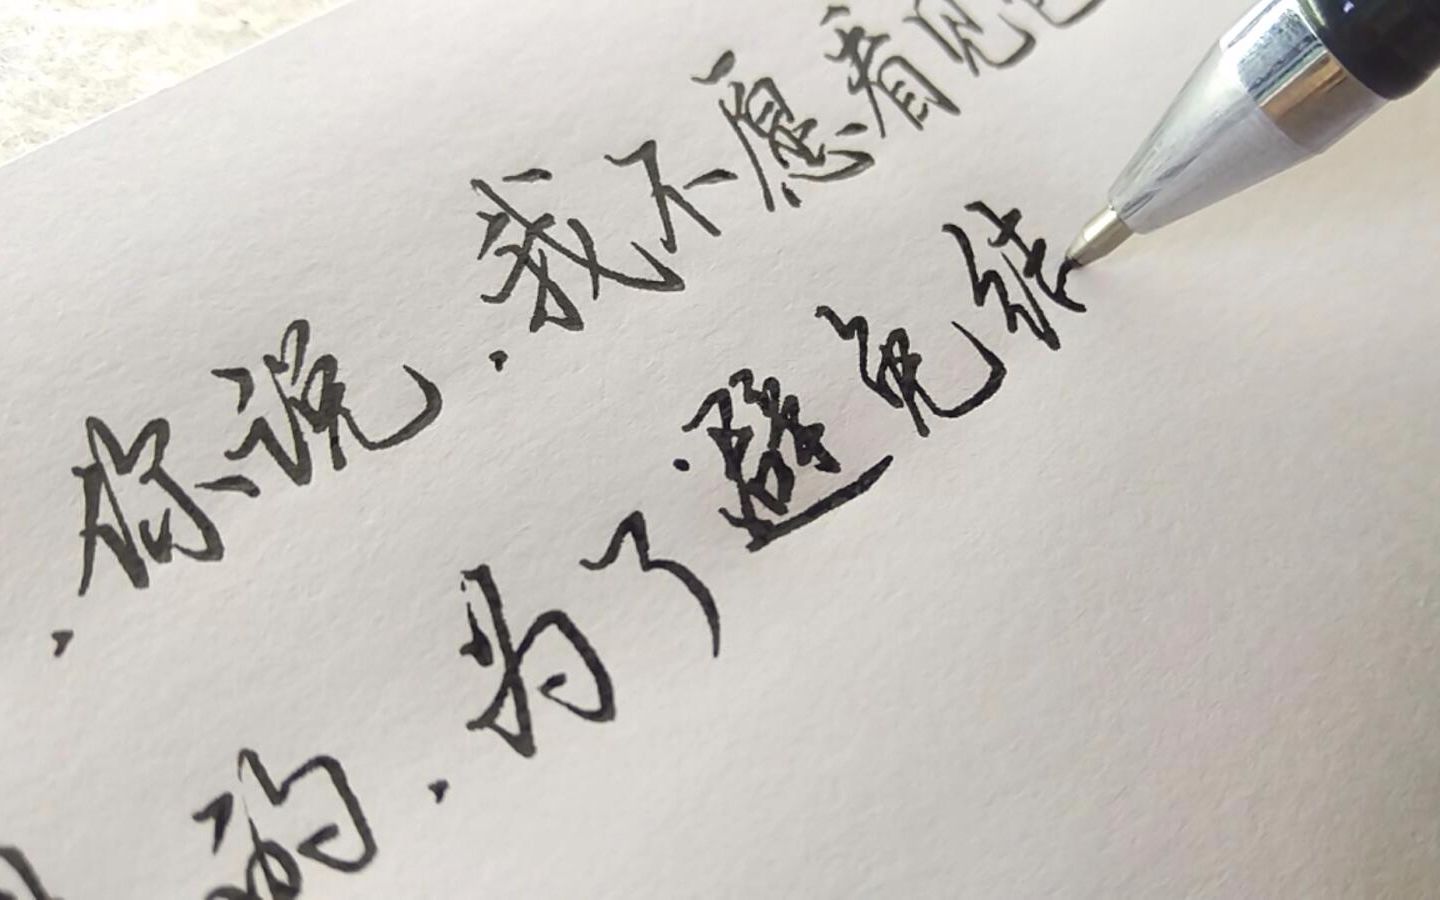 ，你说，我不愿看见
的，为了避免结